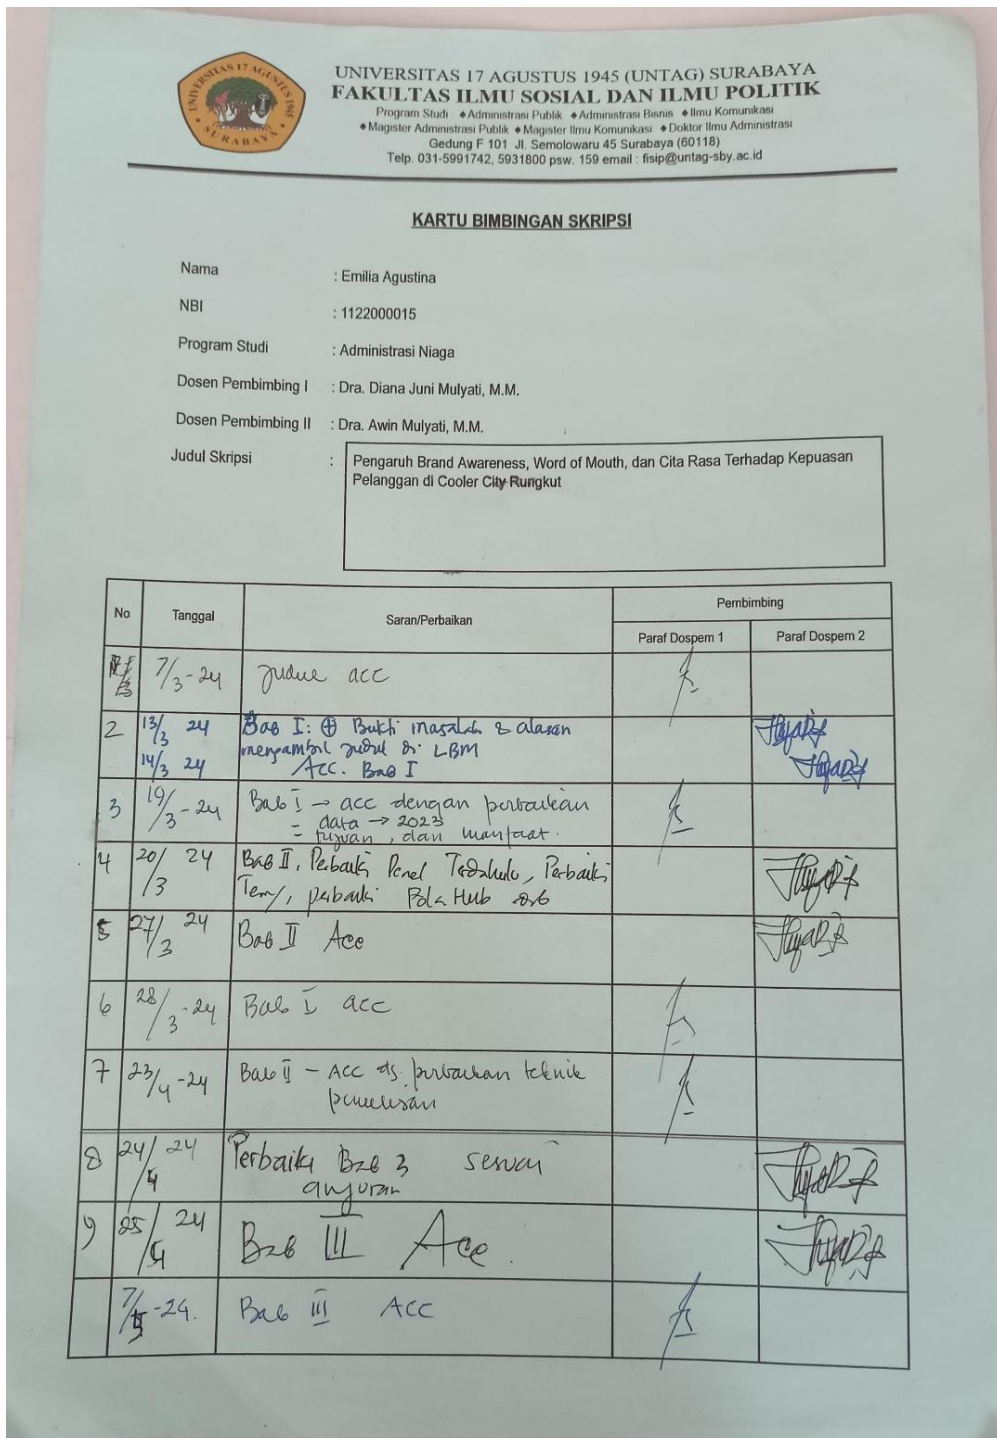 UNIVERSITAS 17 AGUSTUS 1945
SURABAYA
UNIVERSITAS 17 AGUSTUS 1945 (UNTAG) SURABAYA
FAKULTAS ILMU SOSIAL DAN ILMU POLITIK
Program Studi ◆Administrasi Publik ◆Administrasi Bisnis ◆Ilmu Komunikasi
◆Magister Administrasi Publik ◆Magister Ilmu Komunikasi ◆Doktor Ilmu Administrasi
Gedung F 101 Jl. Semolowaru 45 Surabaya (60118)
Telp. 031-5991742, 5931800 psw. 159 email : fisip@untag-sby.ac.id
KARTU BIMBINGAN SKRIPSI
Nama : Emilia Agustina
NBI : 1122000015
Program Studi : Administrasi Niaga
Dosen Pembimbing I : Dra. Diana Juni Mulyati, M.M.
Dosen Pembimbing II : Dra. Awin Mulyati, M.M.
Judul Skripsi : Pengaruh Brand Awareness, Word of Mouth, dan Cita Rasa Terhadap Kepuasan
Pelanggan di Cooler City Rungkut
No Tanggal Saran/Perbaikan Pembimbing
Paraf Dospem 1 Paraf Dospem 2
7/3-24 Judul acc
2 13/3 24 Bab I: ⊕ Bukti masalah & alasan
mengambil judul di LBM
14/3 24 Acc. Bab I
3 19/3-24 Bab I → acc dengan perbaikan
= data → 2023
= tujuan, dan manfaat.
4 20/3 24 Bab II, Perbaiki Penel Terdahulu, Perbaiki
Teory, perbaiki Pola Hub
5 27/3 24 Bab II Acc
6 28/3-24 Bab I acc
7 23/4-24 Bab II - ACC dg. perbaikan teknik
penulisan
8 24/4 24 Perbaiki Bab 3 sesuai
anjuran
9 25/4 24 Bab III Acc.
7/5-24. Bab III ACC